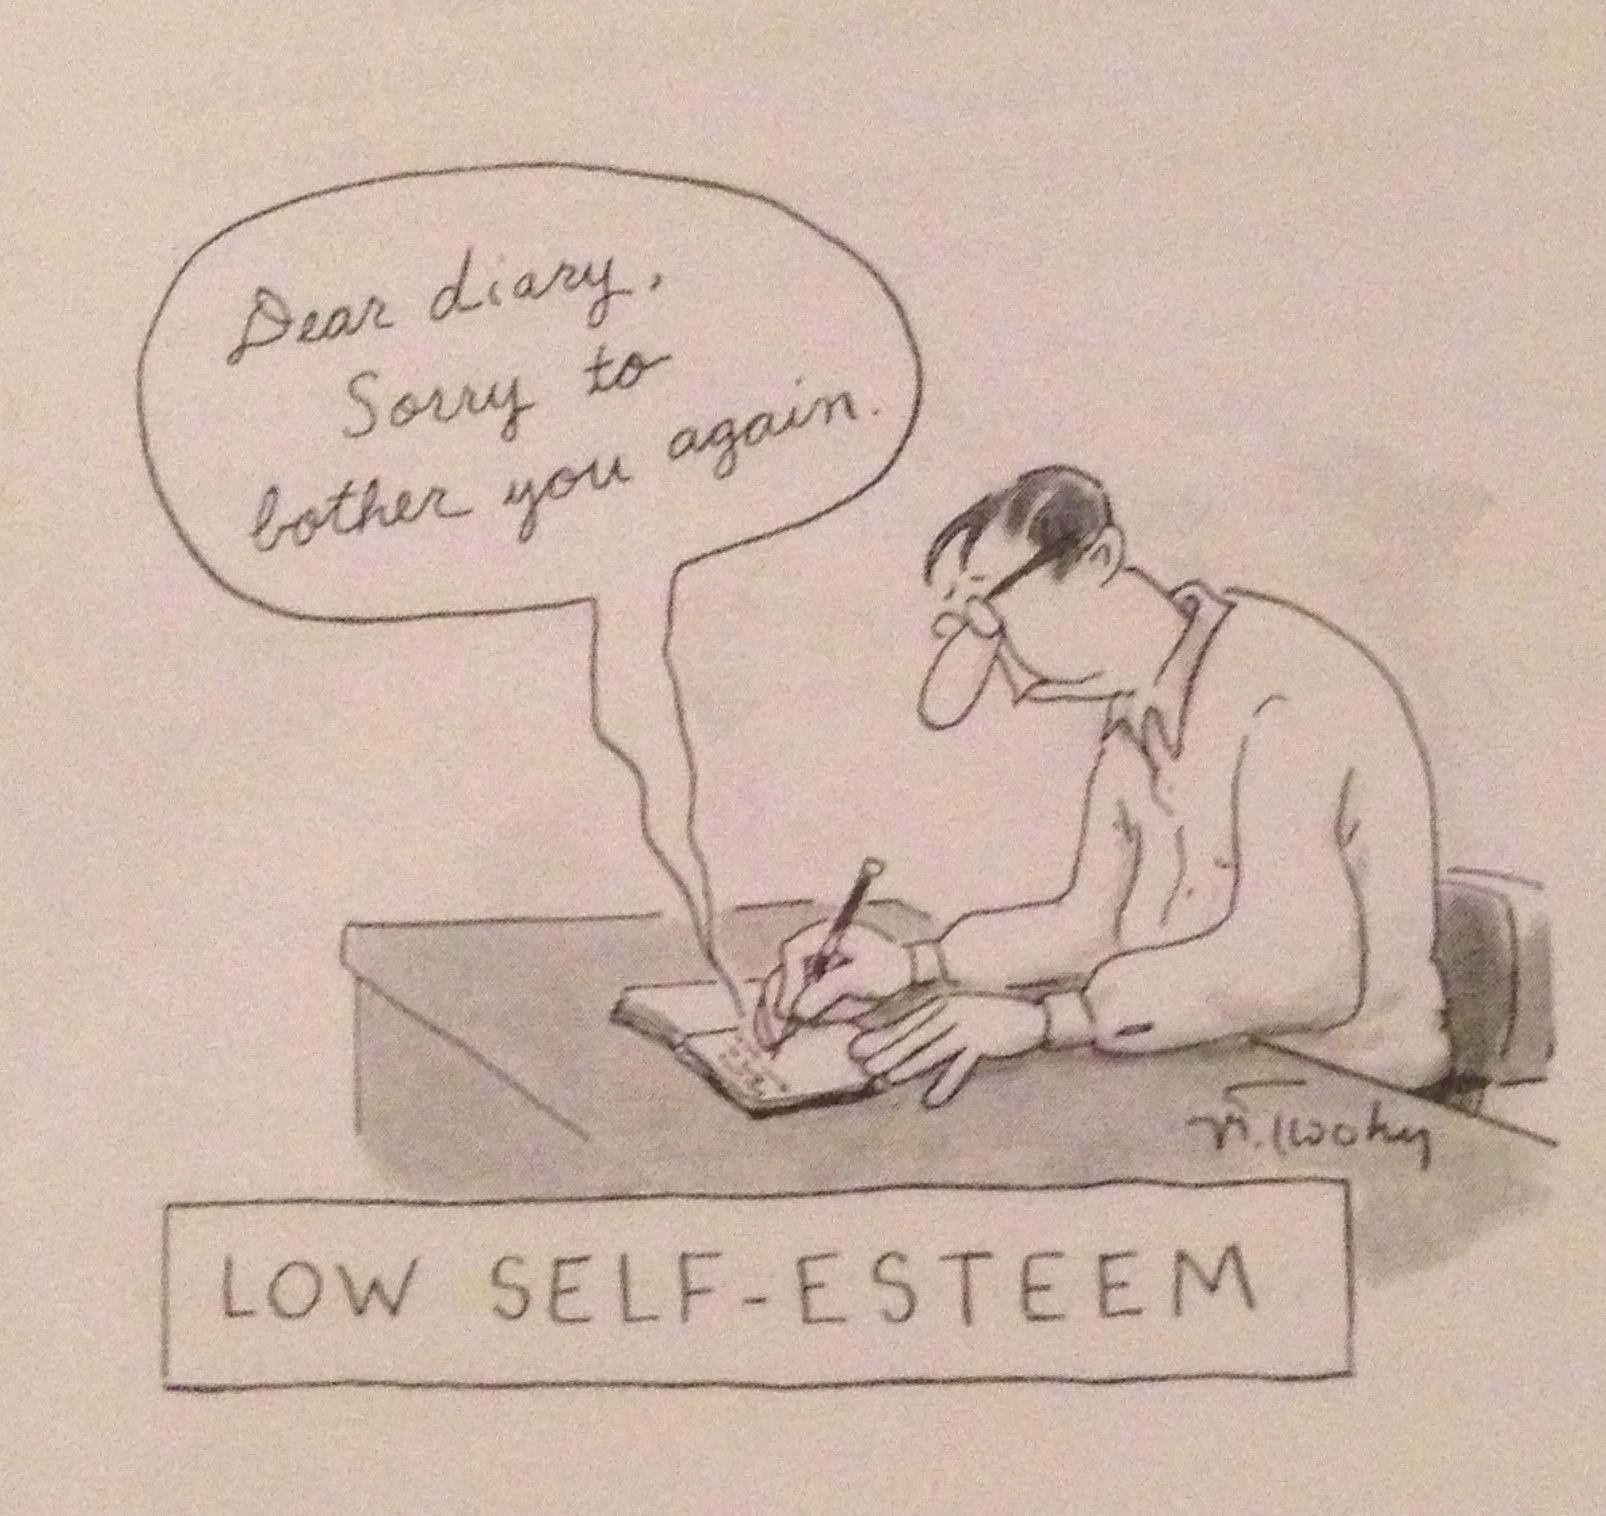 Dear diary,
Sorry to
bother you again.
LOW SELF-ESTEEM